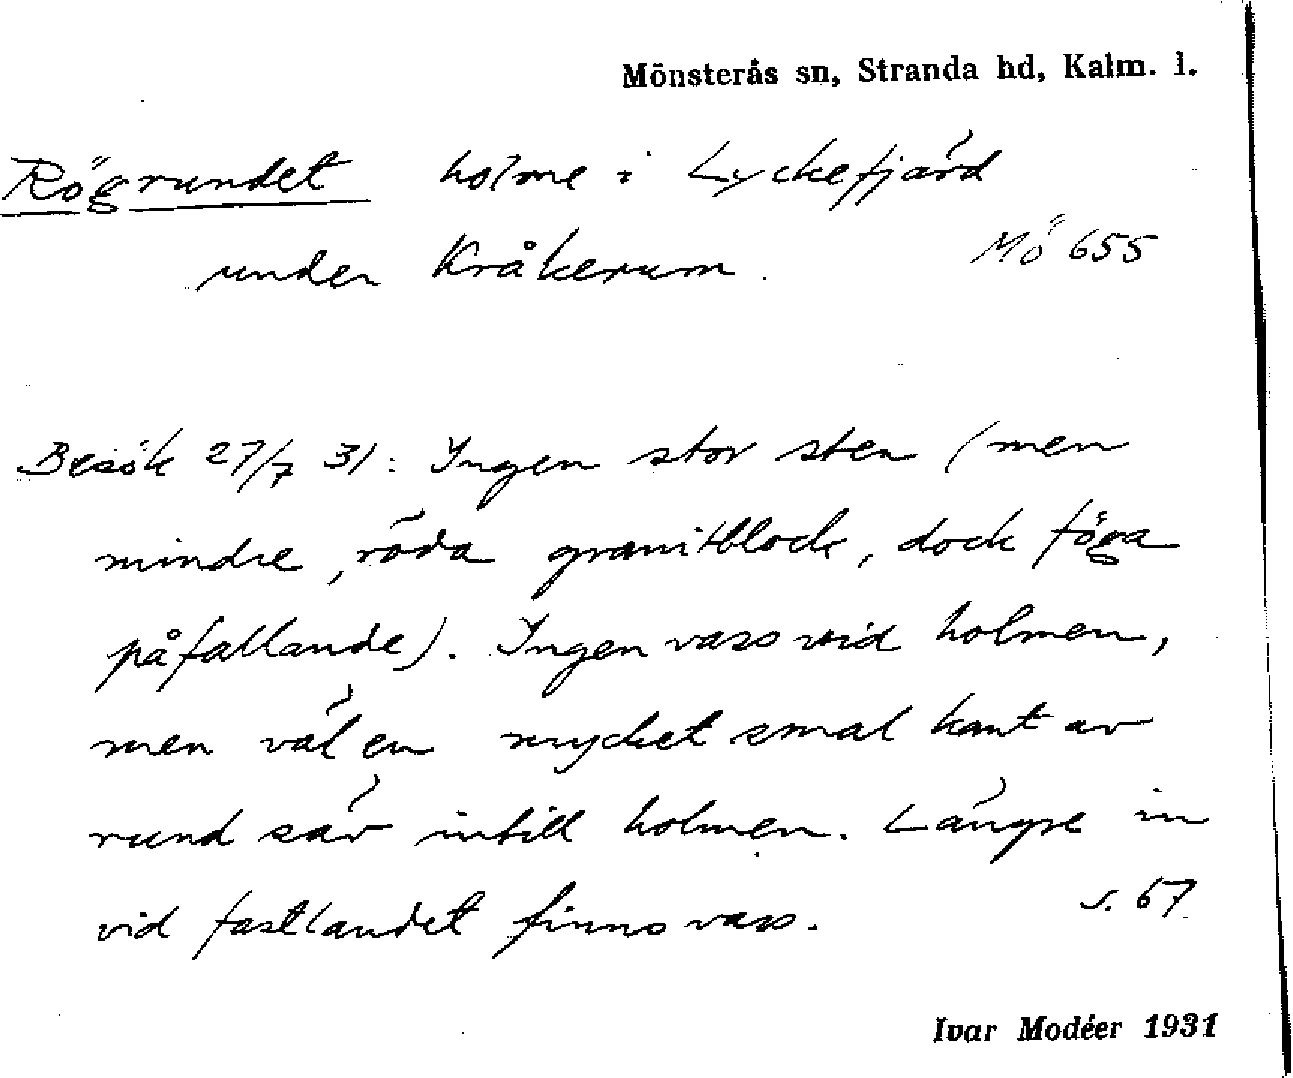 Mönsterås sn, Stranda hd, Kalm. l.
Rögrundet holme i Lyckefjärd
under Kråkerum.
Mö 655
Besök 27/7 31: Ingen stor sten (men
mindre, röda granitblock, dock föga
påfallande). Ingen vass vid holmen,
men väl en mycket smal kant av
rund säv intill holmen. Längre in
vid fastlandet finns vass.
s. 67
Ivar Modéer 1931